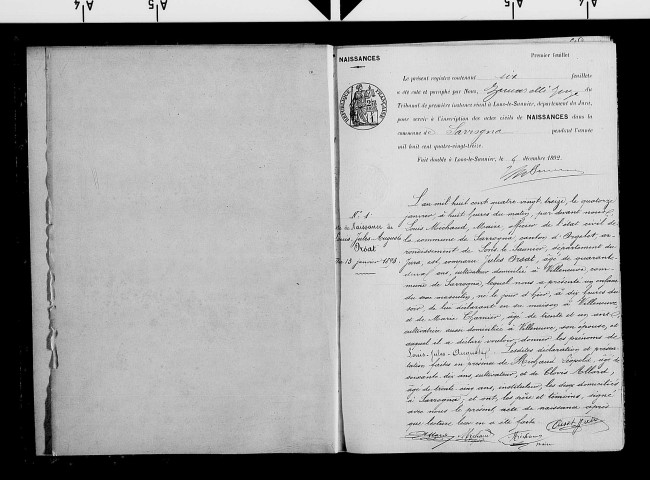 NAISSANCES
Premier feuillet
Le présent registre contenant six feuillets
a été coté et paraphé par Nous, juge du
Tribunal de première instance séant à Lons-le-Saunier, département du Jura,
pour servir à l'inscription des actes civils de NAISSANCES dans la
commune de Sarrogna pendant l'année
mil huit cent quatre-vingt-treize.
Fait double à Lons-le-Saunier, le 6 décembre 1892.
REPUBLIQUE FRANÇAISE
N° 1
Acte de Naissance de
Louis-Jules-Auguste
Orsat
Du 13 janvier 1893.
L'an mil huit cent quatre vingt treize, le quatorze
janvier, à huit heures du matin, par devant nous,
Louis Michaud, Maire, officier de l'état civil de
la commune de Sarrogna, canton d'Orgelet, ar-
rondissement de Lons le Saunier, département du
Jura, est comparu Jules Orsat, âgé de quarante-
deux ans, cultivateur domicilié à Villeneuve com-
mune de Sarrogna, lequel nous a présenté un enfant
du sexe masculin, né le jour d'hier, à dix heures du
soir, de lui déclarant en sa maison à Villeneuve
et de Marie Garnier, âgé de trente et un ans,
cultivatrice aussi domiciliée à Villeneuve, son épouse, et
auquel il a déclaré vouloir donner les prénoms de
Louis-Jules-Auguste. Lesdites déclaration et présen-
tation faites en présence de Michaud Léopold, âgé de
soixante dix ans, cultivateur, et de Clovis Allard,
âgé de trente cinq ans, instituteur, les deux domiciliés
à Sarrogna; et ont, les père et témoins, signé
avec nous le présent acte de naissance après
que lecture leur en a été faite.
Allard Michaud Michaud Orsat Jules